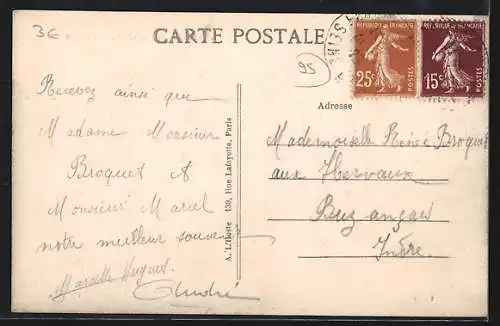 3€
CARTE POSTALE
95
REPUBLIQUE FRANÇAISE
25c
POSTES
REPUBLIQUE FRANÇAISE
15c
POSTES
Adresse
Recevez ainsi que
Madame Monsieur
Broquet et
Monsieur Marcel
notre meilleur souvenir
Marcelle Hugues.
André
A. L'Hoste 139, Rue Lafayette, Paris
Mademoiselle Renée Broquet
aux Hervaux
Buzançais
Indre.